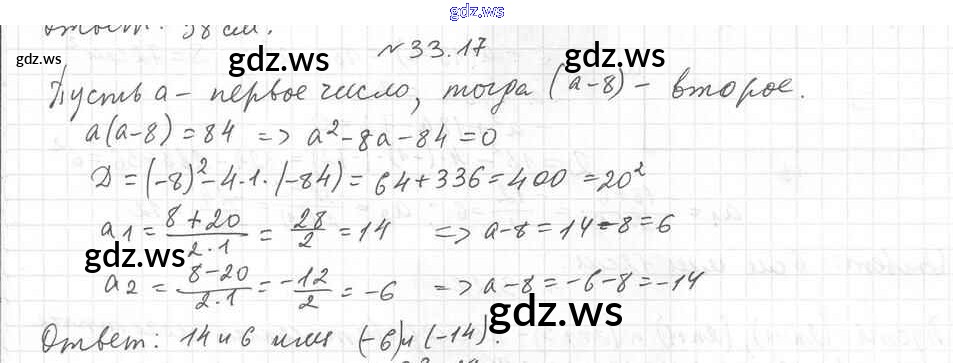 gdz.ws
Ответ: 58 см.
gdz.ws
№ 33.17
gdz.ws gdz.ws
Пусть a - первое число, тогда (a-8) - второе.
a(a-8)=84 => a²-8a-84=0
D=(-8)²-4·1·(-84)=64+336=400=20²
a₁=(8+20)/(2·1)=28/2=14 => a-8=14-8=6
gdz.ws
a₂=(8-20)/(2·1)=-12/2=-6 => a-8=-6-8=-14
gdz.ws
Ответ: 14 и 6 или (-6) и (-14).